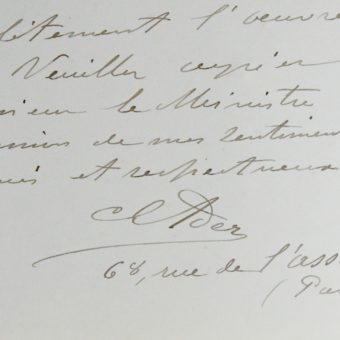 litement l'œuvre
Veuillez agréer
sieur le Ministre
de mes sentiment
et respectueux
CAder
68, rue de l'ass
(Pa